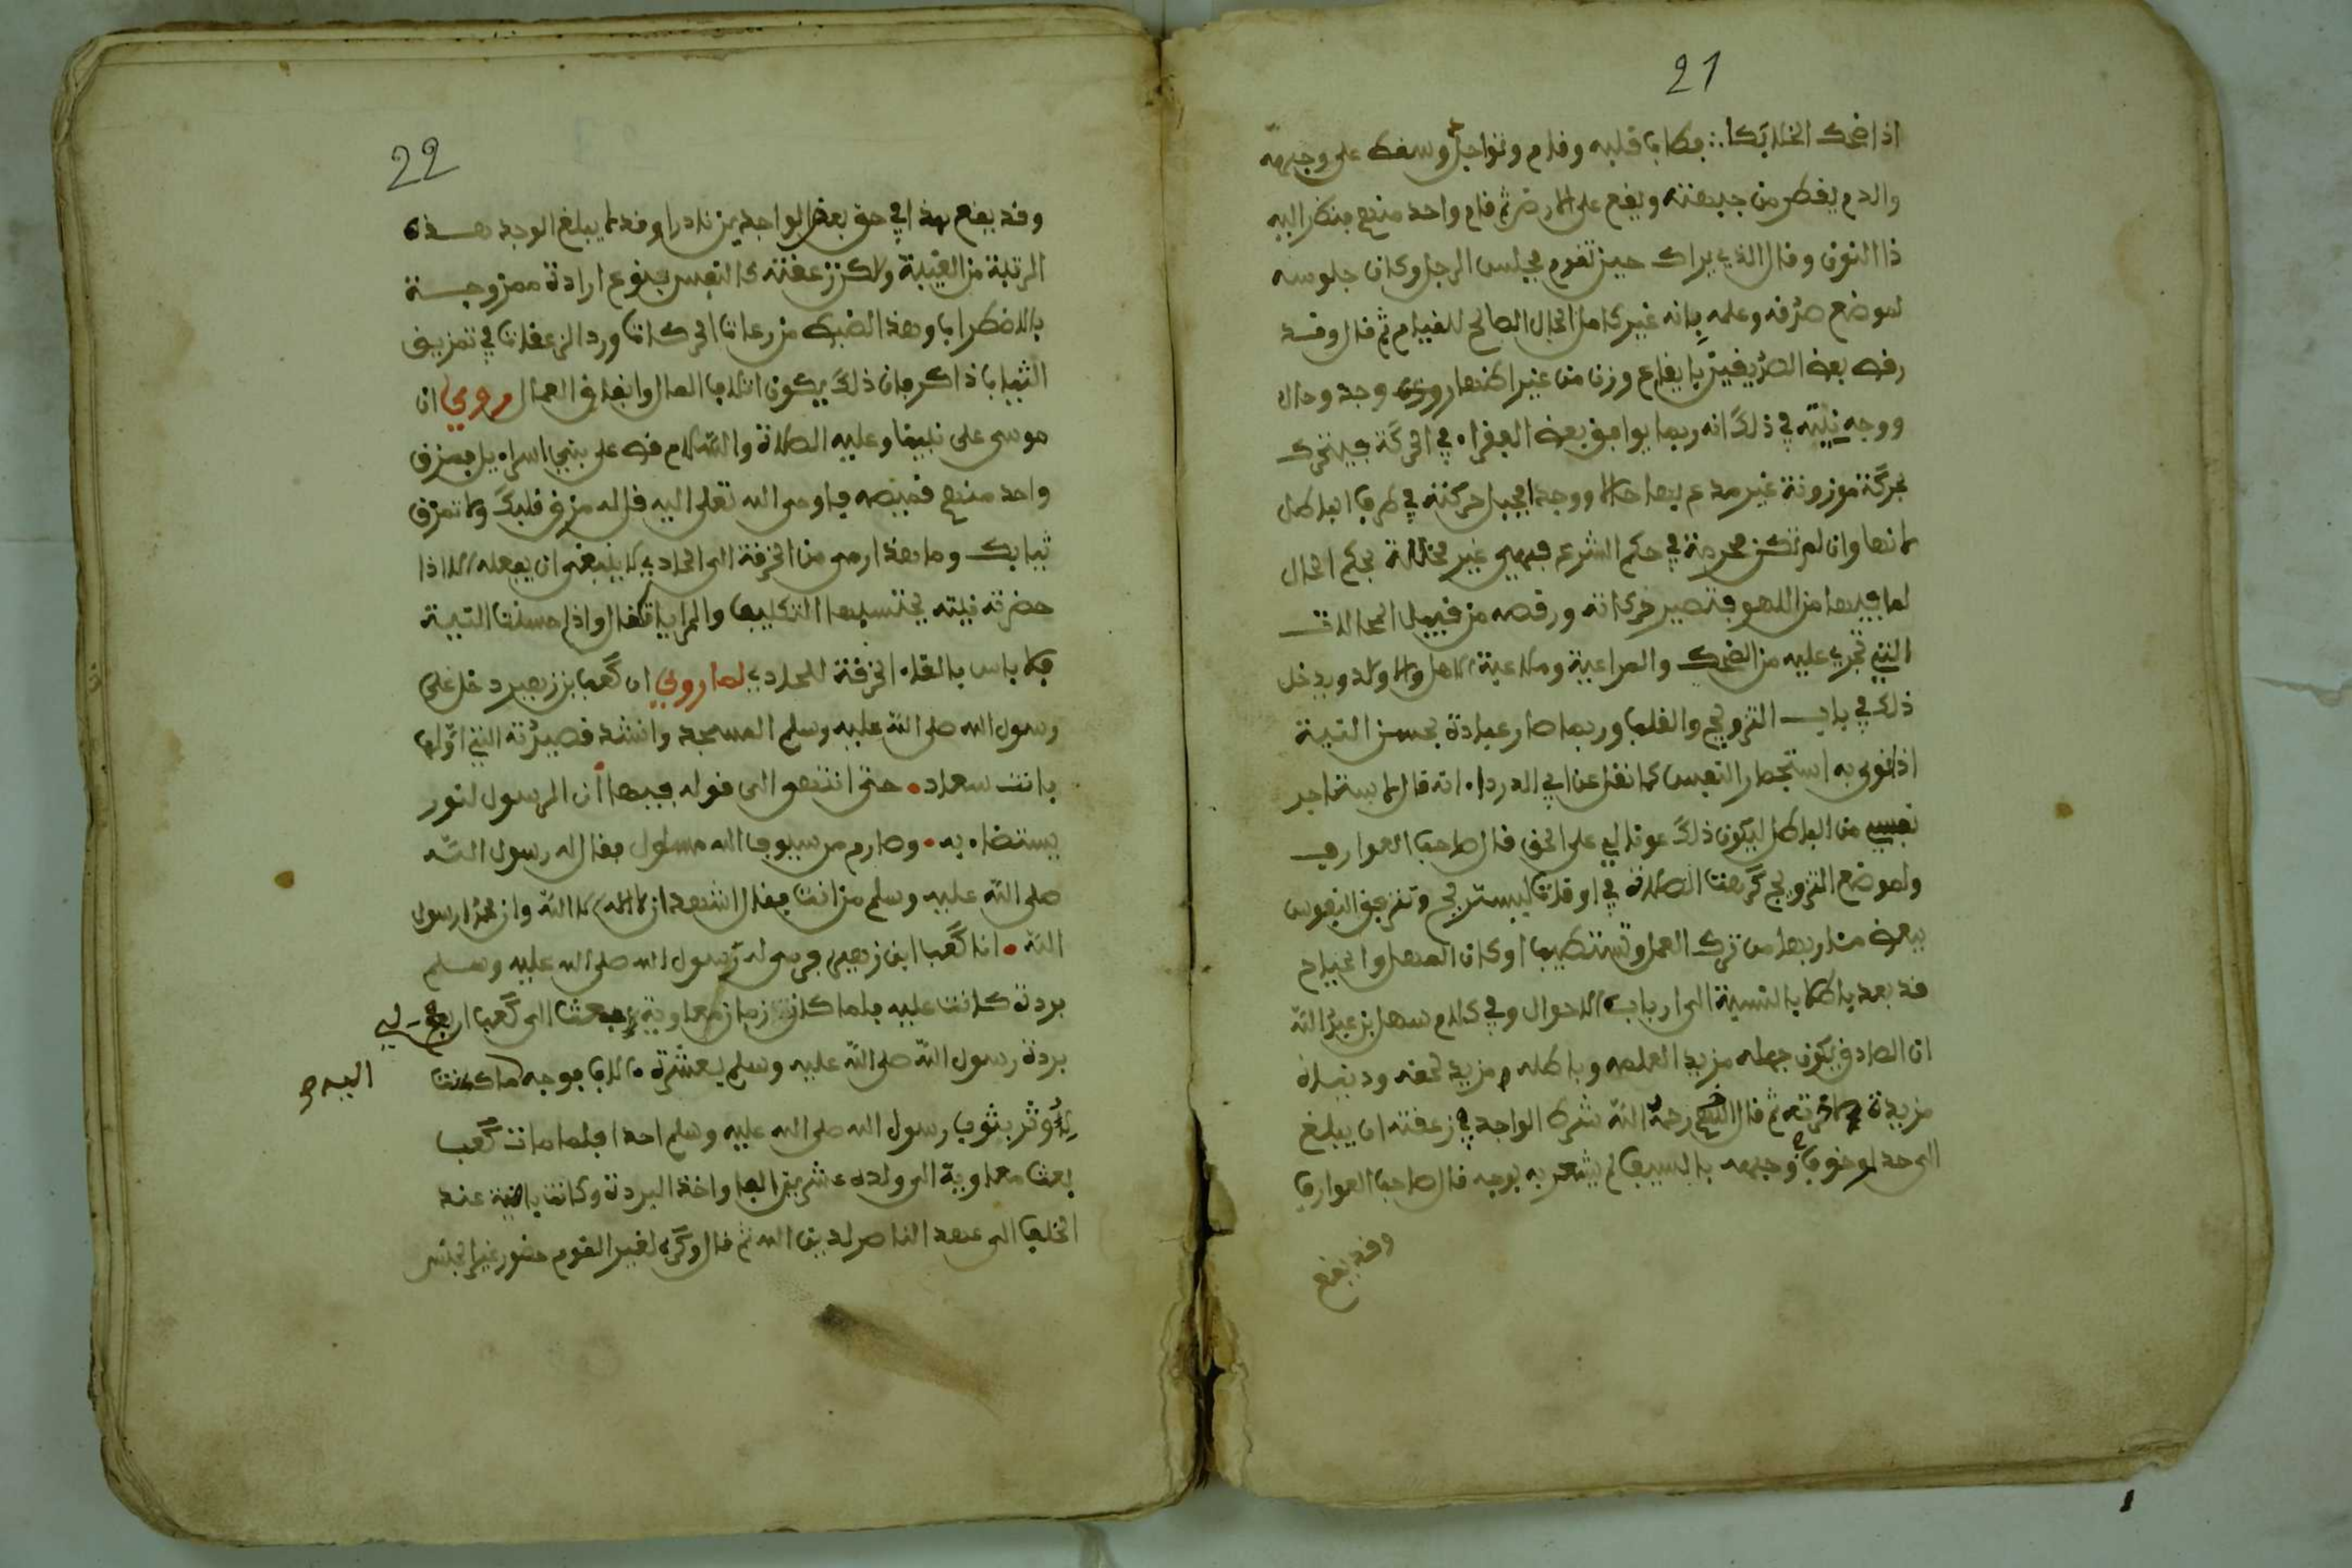 21
اذا ضحك الخلي بكا ∴ فطاب قلبه وقام وتواجد وسقط على وجهه
والدم يقطر من جبهته ويقع على الارض ثم قام واحد منهم فنظر اليه
ذا النون وقال الذي يراك حين تقوم فجلس الرجل وكان جلوسه
لموضع صدقه وعلمه بانه غير كامل الحال الصالح للقيام ثم قال وقد
رقص بعض الصديقين بايقاع وزن من غير اظهار وجد وحال
ووجه نيته في ذلك انه ربما يوافق بعض الفقراء في الحركة فيتحرك
بحركة موزونة غير مدع بها حالا ووجدا يجعل حركته في طرف الباطل
لانها وان لم تكن محرمة في حكم الشرع فهي غير محللة بحكم الحال
لما فيها من اللهو فتصير حركاته ورقصه من قبيل المباحات
التي تجري عليه من الضحك والمداعبة وملاعبة الاهل والاولاد ويدخل
ذلك في باب الترويح والقلب وربما صار عبادة بحسن النية
اذا نوى به استجمام النفس كما نقل عن ابي الدرداء انه قال اني لاستجم
نفسي من الباطل ليكون ذلك عونا لي على الحق قال صاحب العوارف
ولموضع الترويح كرهت الصلاة في اوقات ليستريح وترفق النفوس
ببعض مئاربها من ترك العمل وتستطيب اوطان المهل والمباح
قد يعد باطلا بالنسبة الى ارباب الاحوال وفي كلام سهل بن عبد الله
ان الصادق يكون جهله مزيد العلمه وباطله مزيد لحقه ودنياه
مزيدة لاخرته ثم قال الشيخ رحمه الله شرط الواجد في زعقته ان يبلغ
الى حد لو ضرب وجهه بالسيف لم يشعر به بوجه قال صاحب العوارف
وقد يقع
22
وقد يقع هذا في حق بعض الواجدين نادرا وقد لا يبلغ الوجد هذه
الرتبة من الغيبة ولاكن زعقته كالتنفس بنوع ارادة ممزوجة
بالاضطراب وهذا الضبط من رعاة الحركات ورد الزعقات في تمزيق
الثياب اذ اكد فان ذلك يكون اتلاف المال وانفاق المحال روي ان
موسى على نبينا وعليه الصلاة والسلام قص على بني اسراءيل فمزق
واحد منهم قميصه فاوحى الله تعلى اليه قل له مزق قلبك ولا تمزق
ثيابك وما هذا رمى من الخرقة الى الحادي لا ينبغي ان يفعله الا اذا
حضرته نيته يجتنب بها التكليف والمراياة واذا حسنت النية
فلا باس بالقاء الخرقة للحادي لما روي ان كعب بن زهير دخل على
رسول الله صلى الله عليه وسلم المسجد وانشد قصيدته التي اولها
بانت سعاد • حتى انتهى الى قوله فيها ان الرسول لنور
يستضاء به • وصارم من سيوف الله مسلول فقال له رسول الله
صلى الله عليه وسلم من انت فقال اشهد ان لا اله الا الله وان محمدا رسول
الله • انا كعب ابن زهير فرمى له رسول الله صلى الله عليه وسلم
بردة كانت عليه فلما كان زمان معاوية بعث الى كعب
بردة رسول الله صلى الله عليه وسلم بعشرة ءالاف فوجه ما كنت
لأوثر بثوب رسول الله صلى الله عليه وسلم احدا فلما مات كعب
بعث معاوية الى ولده عشرين الفا واخذ البردة وكانت باقية عند
الخلفا الى عهد الناصر لدين الله ثم قال وكره لغير القوم حضور غير الجنس